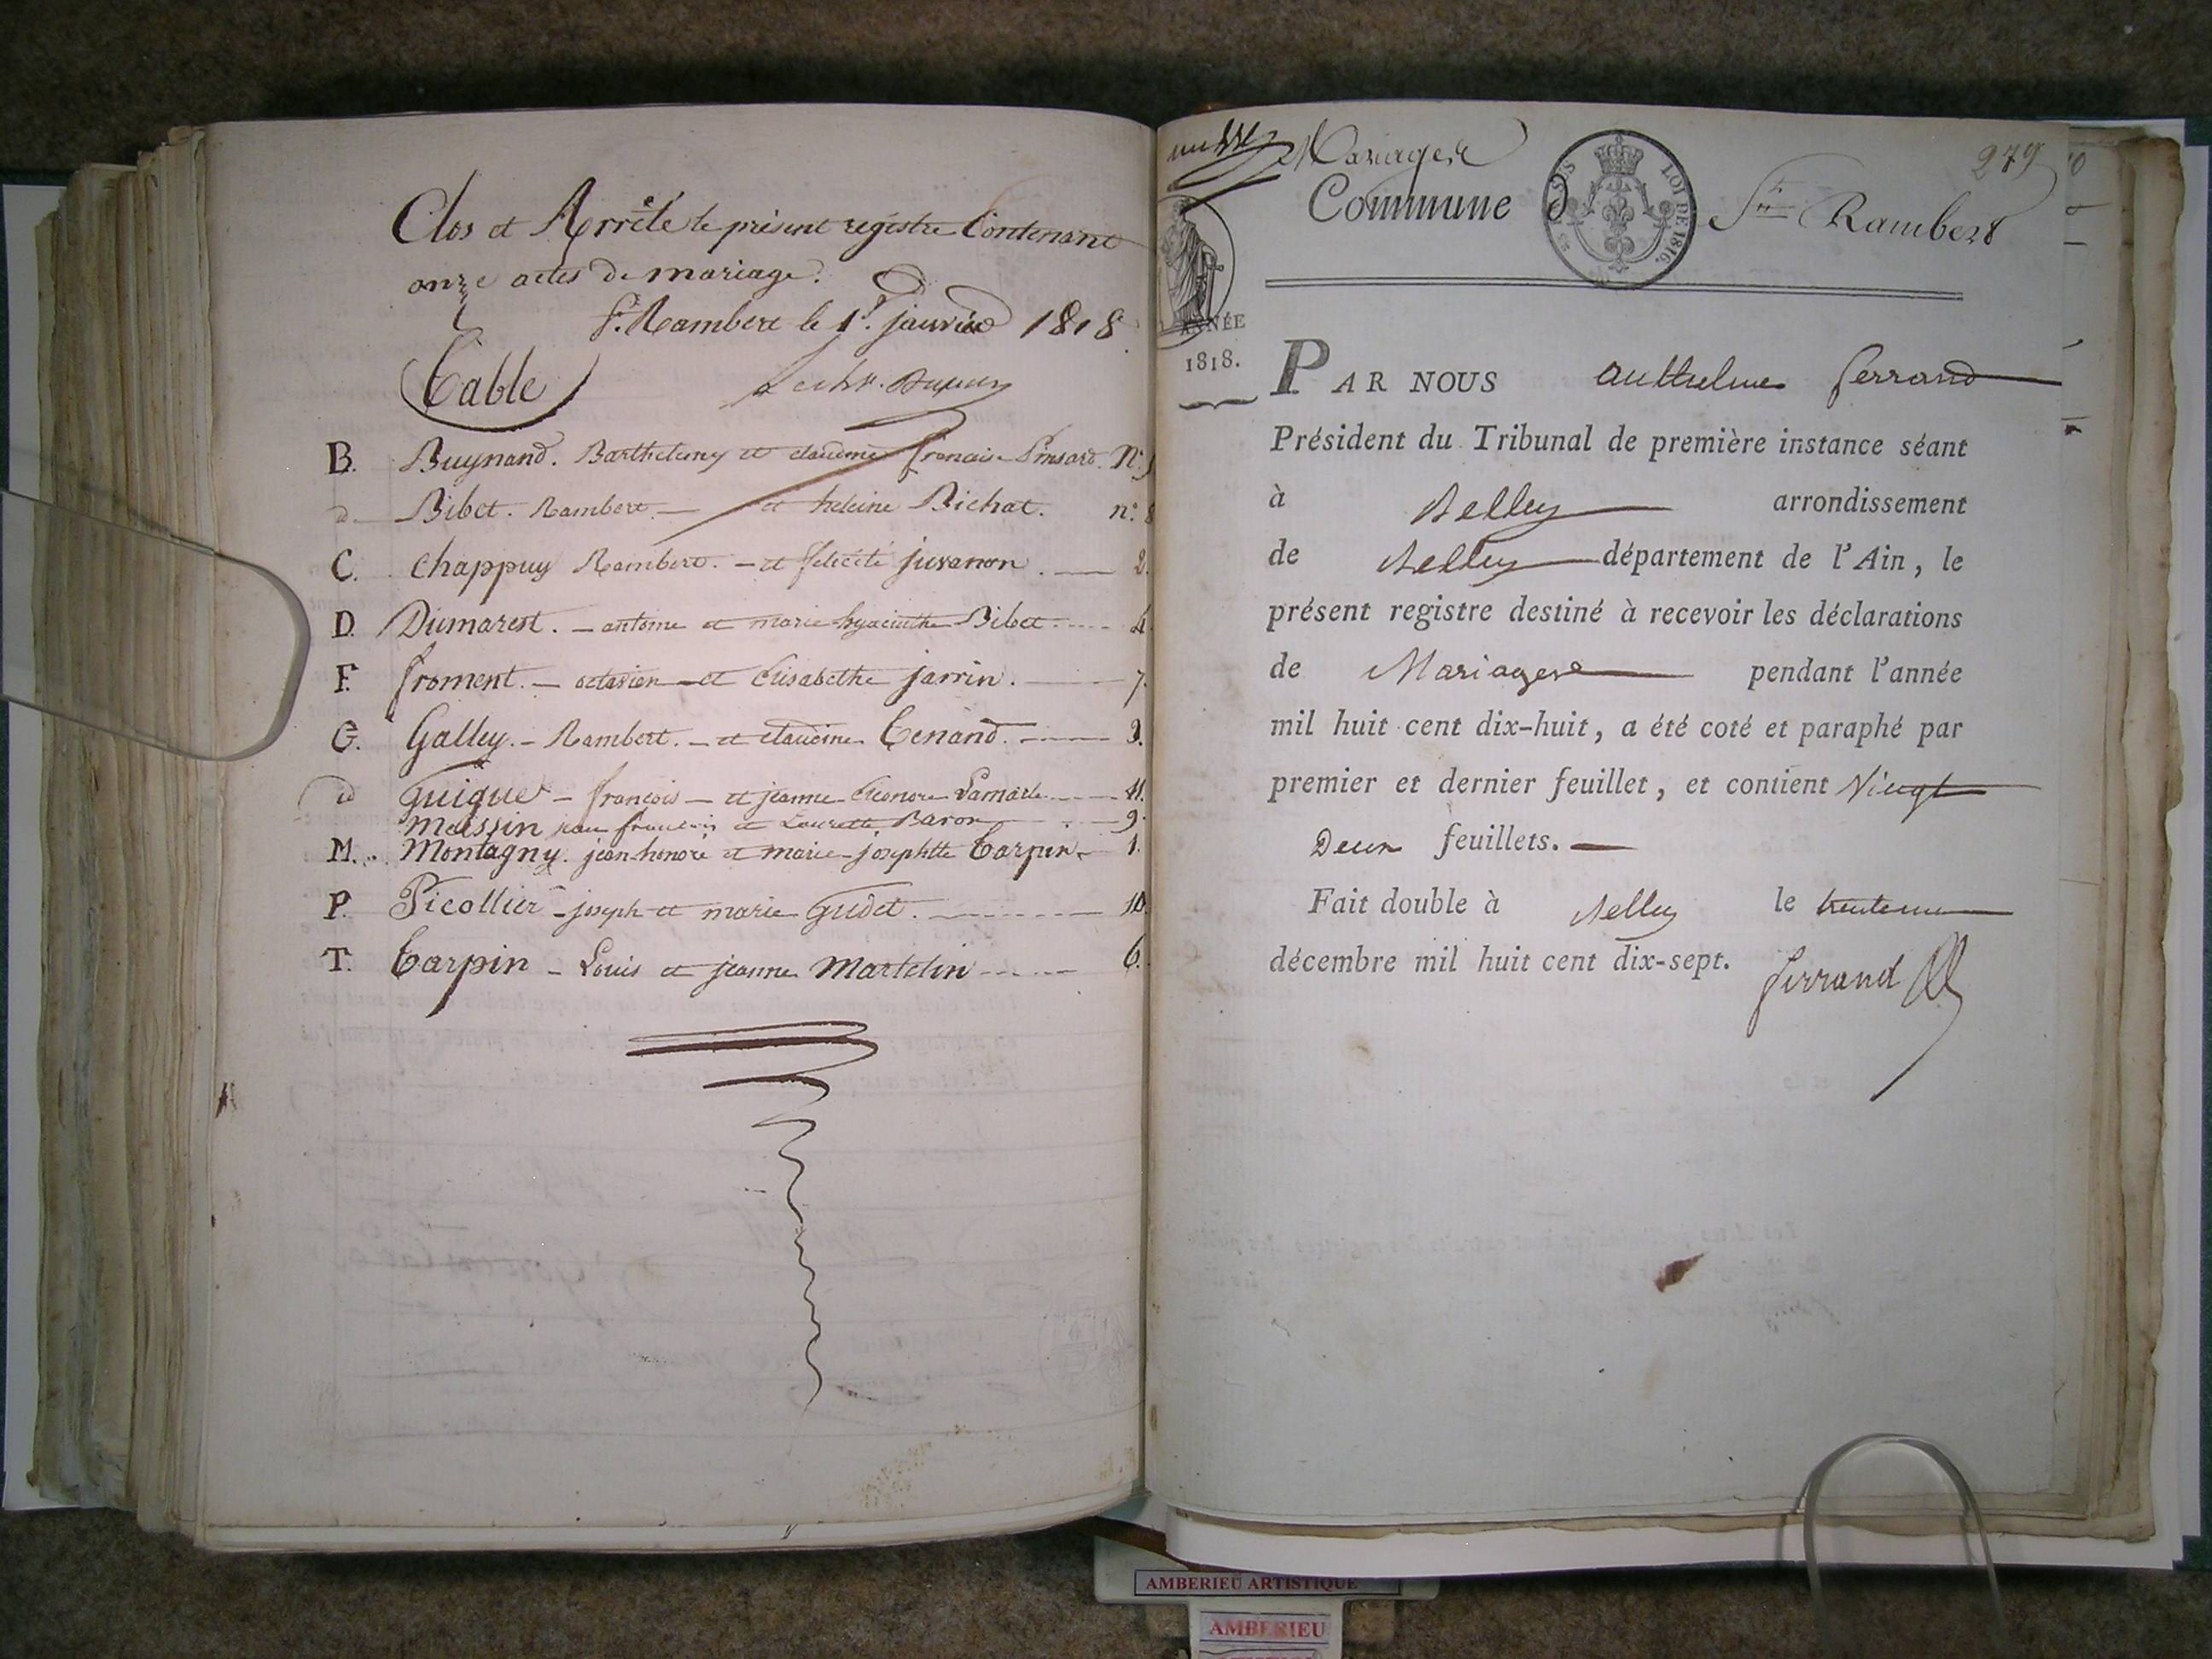 Clos et Arrêté le présent registre Contenant
onze actes de mariage.
St. Rambert le 1er. janvier 1818
Table
B. Buynand. Barthelemy et claudine francoise Pinsard. N°.
d. Bibet. Rambert. — et heleine Bichat. n°. 8
C. Chappuy Rambert. — et felicité juvanon. — 2.
D. Dumarest. — antoine et marie hyacinthe Bibet. — 4
F. froment. — octavien — et Elisabethe jarrin. — 7.
G. Galley. — Rambert. — et claudine Tenand. — 3.
id Guigue — françois — et jeanne Eleonore Lamarle — 11.
Messin jean francois et Laurette Baron — 9.
M. Montagny. jean-honoré et marie-josephtte Tarpin. — 1.
P. Picollier — joseph et marie Gudet. — 10.
T. Tarpin — Louis et jeanne Martelin — 6.
Mariages 279
Commune de St Rambert
LOI DE 1816.
ANNÉE
1818.
PAR NOUS Anthelme ferrand
Président du Tribunal de première instance séant
à Belley arrondissement
de Belley département de l'Ain, le
présent registre destiné à recevoir les déclarations
de Mariages pendant l'année
mil huit cent dix-huit, a été coté et paraphé par
premier et dernier feuillet, et contient Vingt
Deux feuillets. —
Fait double à Belley le trente un
décembre mil huit cent dix-sept.
ferrand
AMBERIEU ARTISTIQUE
AMBERIEU